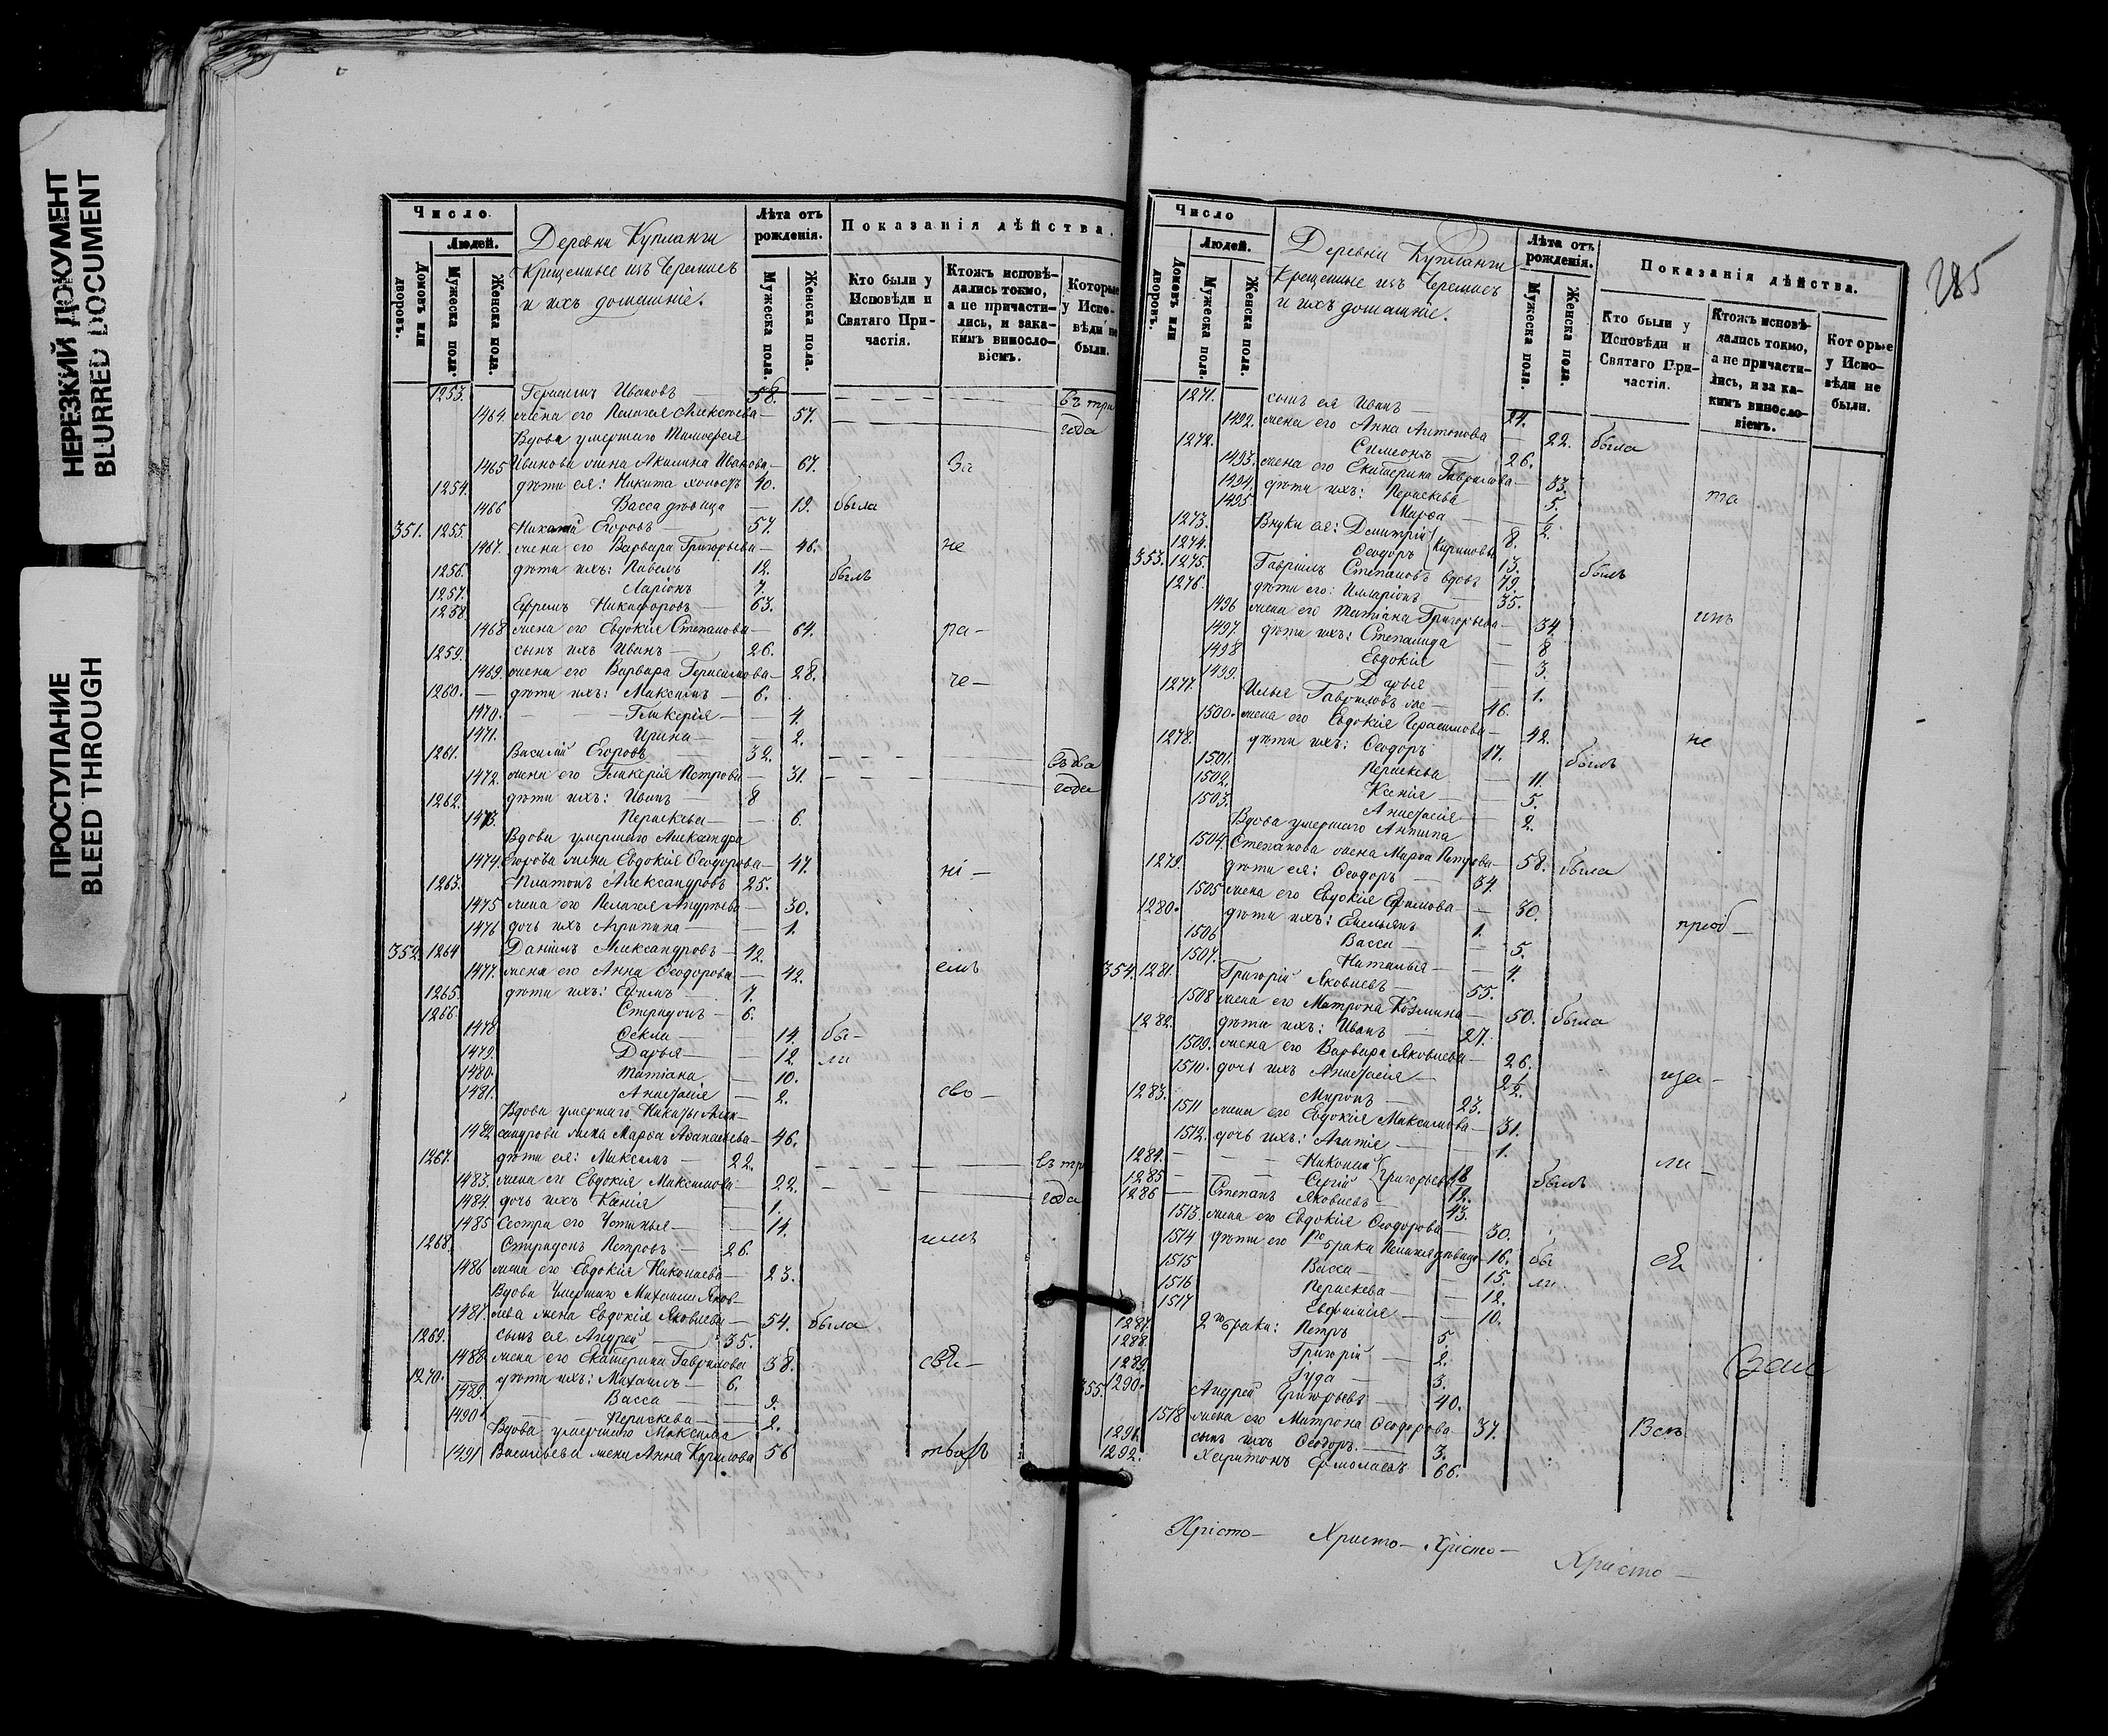 НЕРЕЗКИЙ ДОКУМЕНТ
BLURRED DOCUMENT
ПРОСТУПАНИЕ
BLEED THROUGH
Число
Людей.
Домовъ или дворовъ.
Мужеска пола.
Женска пола.
Деревни Купланги
Крещенные изъ Черемисъ
и ихъ домашніе.
Лѣта отъ рожденія.
Мужеска пола.
Женска пола.
Показанія дѣйства.
Кто были у Исповѣди и Святаго При-частія.
Ктожъ исповѣ-дались токмо, а не причасти-лись, и зака-кимъ виносло-віемъ.
Которые у Испо-вѣди не были.
1253. Герасимъ Ивановъ 58. въ три
1464 жена его Пелагея Алексѣева 57. года
Вдова умершаго Тимоѳея
1465 Иванова жена Акилина Иванова 67. За
1254. дѣти ея: Никита холостъ 40.
1466 Васса дѣвица 19. была
351. 1255. Егоровъ 57
1467. жена его Варвара Григорьева 46. не
1256. дѣти ихъ: Павелъ 12. былъ
1257. Ларіонъ 7.
1258. Ефремъ Никифоровъ 63.
1468 жена его Евдокія Степанова 64. ра-
1259. сынъ ихъ Иванъ 26.
1469. жена его Варвара Герасимова 28. че-
1260. дѣти ихъ: Максимъ 6.
1470. Гликерія 4.
1471. Ирина 2.
1261. Василій Егоровъ 32. въ два
1472. жена его Гликерія Петрова 31. года
1262. дѣти ихъ: Иванъ 8
1473. Параскева 6.
Вдова умершаго Александра
1474. Егорова жена Евдокія Ѳеодорова 47. ні-
1263. Платонъ Александровъ 25.
1475 жена его Пелагея Андреева 30.
1476 дочь ихъ Агрипина 1.
352. 1264 Даніилъ Александровъ 42.
1477. жена его Анна Ѳеодорова 42. емъ
1265. дѣти ихъ: Ефимъ 7.
1266 Спиридонъ 6.
1478. Ѳекла 14. бы-
1479. Дарья 12. ли
1480. Татіана 10.
1481. Анастасія 2. сво-
Вдова умершаго Никиты Алек-
1482 сандрова жена Марѳа Аѳанасьева 46.
1267. дѣти ея: Максимъ 22. въ тр
1483. жена его Евдокія Максимова 22. года
1484. дочь ихъ Ксенія 1.
1485 Сестра его Устинья 14.
1268. Спиридонъ Петровъ 26. имъ
1486 жена его Евдокія Николаева 23.
Вдова Умершаго Михаила Яков-
1487. лева жена Евдокія Яковлева 54. была
1269. сынъ ея Андрей 35.
1488 жена его Екатерина Гаврилова 38. свя-
1270. дѣти ихъ: Михаилъ 6.
1489. Васса 9.
1490 Параскева 2.
Вдова умершаго Максима
1491 Васильева жена Анна Карпова 56
285
Число
Людей.
Домовъ или дворовъ.
Мужеска пола.
Женска пола.
Деревни Купланги
Крещенные изъ Черемисъ
и ихъ домашніе.
Лѣта отъ рожденія.
Мужеска пола.
Женска пола.
Показанія дѣйства.
Кто были у Исповѣди и Святаго При-частія.
Ктожъ исповѣ-дались токмо, а не причасти-лись, и за ка-кимъ виносло-віемъ.
Которые у Испо-вѣди не были.
1271. сынъ ея Иванъ 24.
1492. жена его Анна Антонова 22. была
1272. Симеонъ 26.
1493. жена его Екатерина Гаврилова 33.
1494. дѣти ихъ: Параскева 5. та
1495. Марѳа 2.
1273. Внуки ея: Дмитрій 8.
1274. Ѳеодоръ 13.
353. 1275. Гавріилъ Степановъ вдовъ 79. былъ
1276. дѣти его: Илларіонъ 35.
1496 жена его Татіана Григорьева 34.
1497. дѣти ихъ: Степанида 8
1498 Евдокія 3.
1499. Дарья 1.
1277. Илья Гавриловъ 46.
1500. жена его Евдокія Герасимова 42. не
1278. дѣти ихъ: Ѳеодоръ 17. былъ
1501. Параскева 11.
1502. Ксенія 5.
1503. Анастасія 2.
Вдова умершаго Антипа
1504. Степанова жена Марѳа Петрова 58. была
1279. дѣти ея: Ѳеодоръ 34.
1505 жена его Евдокія Ефимова 30.
1280. дѣти ихъ: Емельянъ 1. преоб-
1506 Васса 5.
1507. Наталья 4.
354. 1281. Григорій Яковлевъ 55.
1508 жена его Матрона Козмина 50. была
1282. дѣти ихъ: Иванъ 27.
1509. жена его Варвара Яковлева 26.
1510. дочь ихъ Анастасія 2½.
1283. Миронъ 23.
1511 жена его Евдокія Максимова 31.
1512. дочь ихъ: Агапія 1. ли-
1284. Николай 18
1285 Сергій Григорьевы 12. былъ
1286 Степанъ Яковлевъ 43.
1513. жена его Евдокія Ѳеодорова 30.
1514 дѣти его 1го брака Пелагея дѣвица 16. бы
1515 Васса 15. ли
1516 Параскева 12.
1517 Евфимія 10.
1287. 2го брака: Петръ 5.
1288. Григорій 2.
1289. Іуда 3.
355. 1290. Андрей Григорьевъ 40.
1518 жена его Матрона Ѳеодорова 37.
1291. сынъ ихъ Ѳеодоръ 3.
1292. Харитонъ Ермолаевъ 66.
Христо- Христо- Христо- Христо-